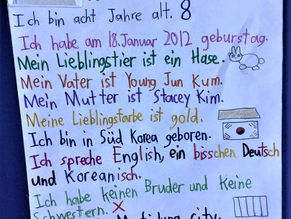 Ich bin acht Jahre alt. 8
Ich habe am 18.Januar 2012 geburstag.
Mein Lieblingstier ist ein Hase.
Mein Vater ist Young Jun Kum.
Mein Mutter ist Stacey Kim.
Meine Lieblingsfarbe ist gold.
Ich bin in Süd Korea geboren.
Ich spreche English, ein bisschen Deutsch
und Koreanisch.
Ich habe keinen Bruder und Keine
Schwestern. X
city.